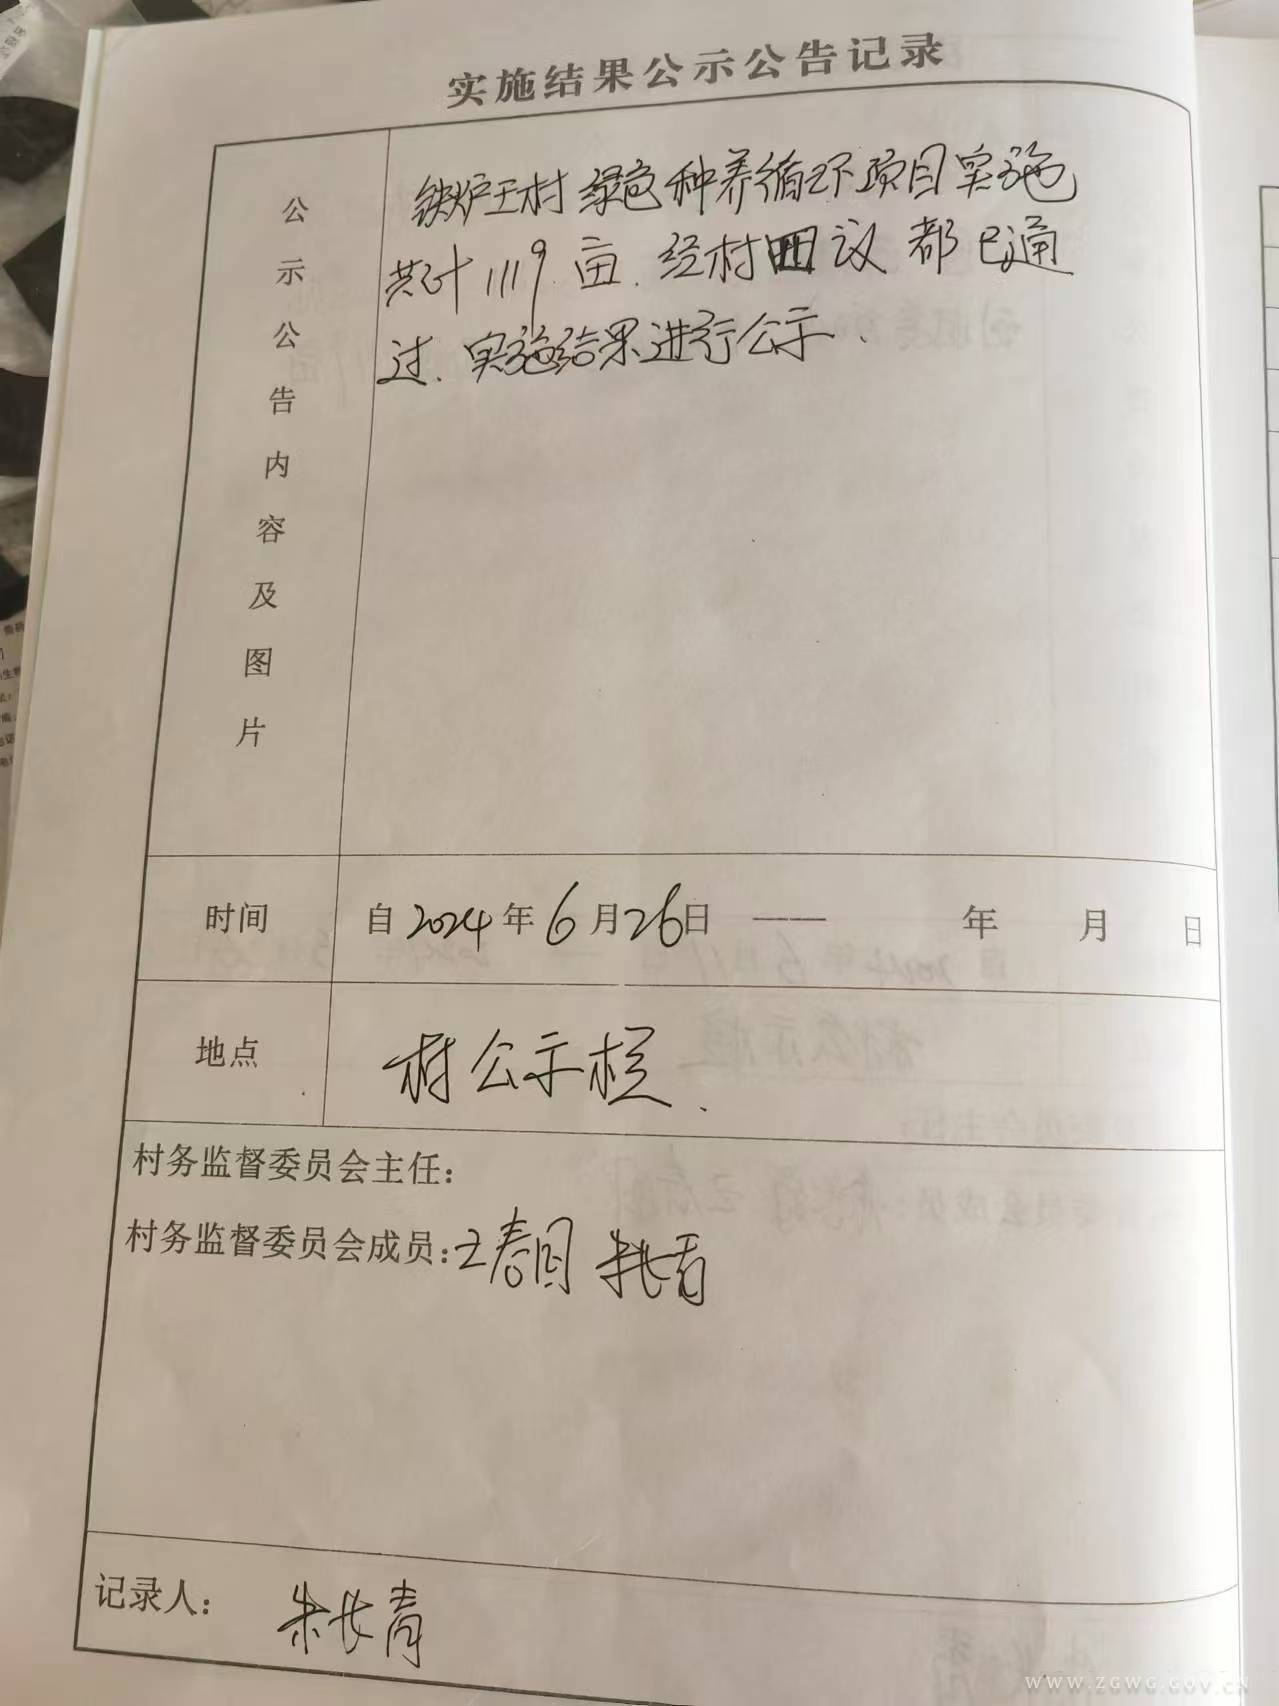 实施结果公示公告记录
公示公告内容及图片
铁炉王村绿色种养循环项目实施
共计1119亩.经村四议都已通
过.实施结果进行公示.
时间
自2024年6月26日 —— 年 月 日
地点
村公示栏.
村务监督委员会主任:
村务监督委员会成员:王春
记录人: 朱长青
WWW.ZGWG.GOV.CN